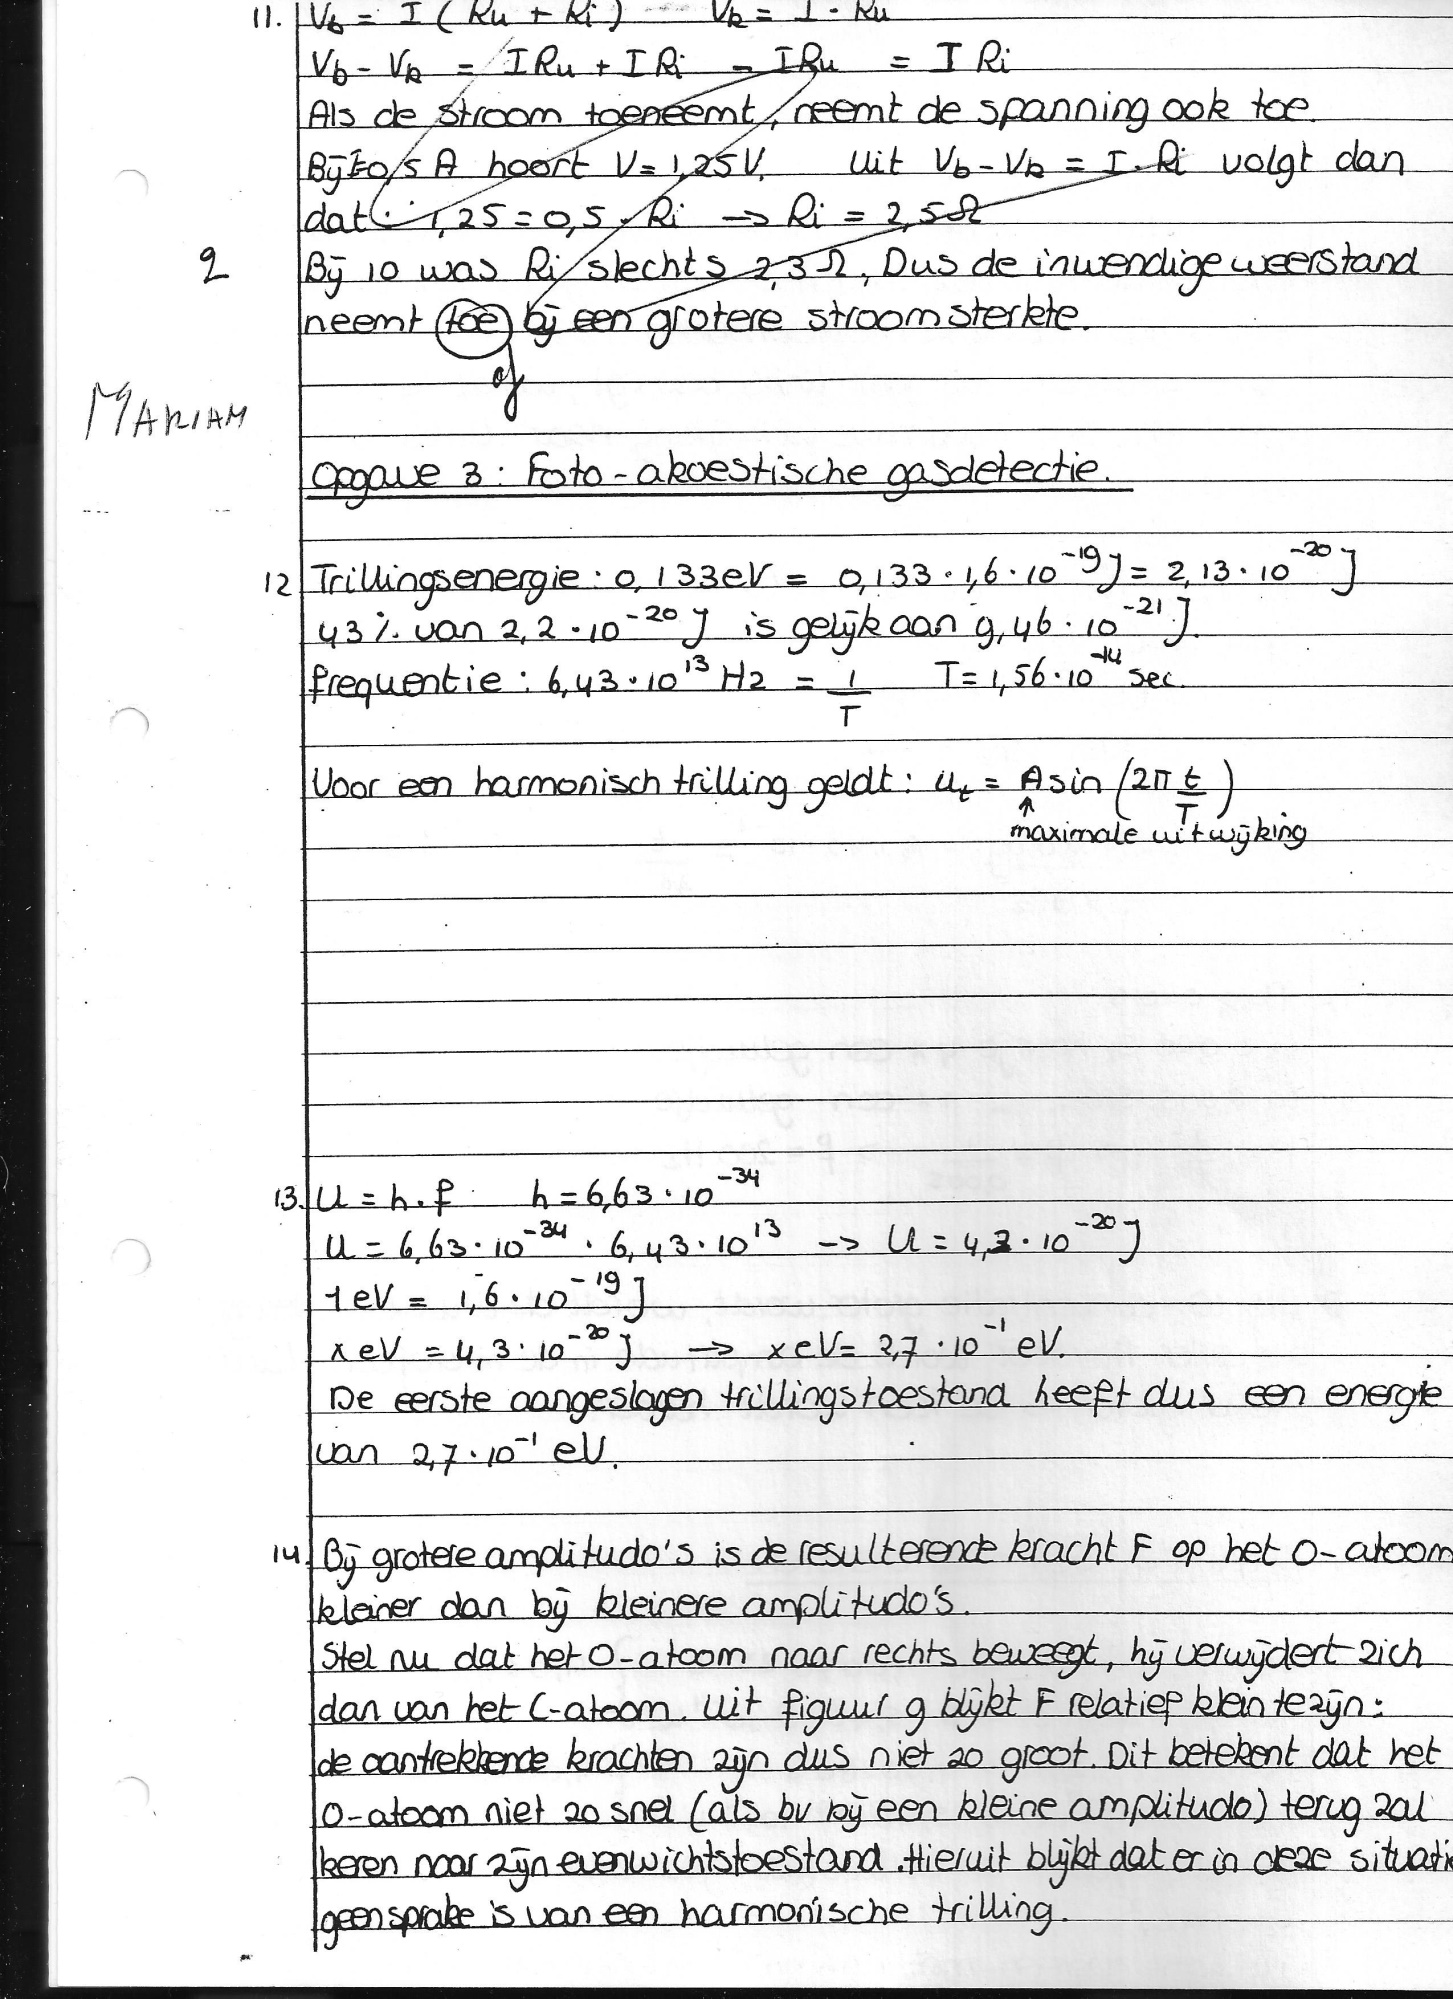 11. Vb = I (Ru + Ri) Vk = I · Ru
Vb - Vk = IRu + IRi - IRu = I Ri
Als de stroom toeneemt, neemt de spanning ook toe.
Bij I 0,5 A hoort V = 1,25V. Uit Vb - Vk = I · Ri volgt dan
dat: 1,25 = 0,5 · Ri → Ri = 2,5 Ω
2 Bij 10 was Ri slechts 2,3 Ω, Dus de inwendige weerstand
neemt toe bij een grotere stroomsterkte.
of
MARIAM
Opgave 3: Foto-akoestische gasdetectie.
12 Trillingsenergie: 0,133eV = 0,133 · 1,6 · 10⁻¹⁹J = 2,13 · 10⁻²⁰J
43% van 2,2 · 10⁻²⁰J is gelijk aan 9,46 · 10⁻²¹J.
frequentie: 6,43 · 10¹³ Hz = 1/T T = 1,56 · 10⁻¹⁴ sec.
Voor een harmonisch trilling geldt: uₜ = A sin (2π t/T)
↑
maximale uitwijking
13. U = h · f h = 6,63 · 10⁻³⁴
U = 6,63 · 10⁻³⁴ · 6,43 · 10¹³ → U = 4,3 · 10⁻²⁰J
1eV = 1,6 · 10⁻¹⁹J
xeV = 4,3 · 10⁻²⁰J → xeV = 2,7 · 10⁻¹ eV.
De eerste aangeslagen trillingstoestand heeft dus een energie
van 2,7 · 10⁻¹ eV.
14. Bij grotere amplitudo's is de resulterende kracht F op het O-atoom
kleiner dan bij kleinere amplitudo's.
Stel nu dat het O-atoom naar rechts beweegt, hij verwijdert zich
dan van het C-atoom. Uit figuur 9 blijkt F relatief klein te zijn:
de aantrekkende krachten zijn dus niet zo groot. Dit betekent dat het
O-atoom niet zo snel (als bv bij een kleine amplitudo) terug zal
keren naar zijn evenwichtstoestand. Hieruit blijkt dat er in deze situati
geen sprake is van een harmonische trilling.